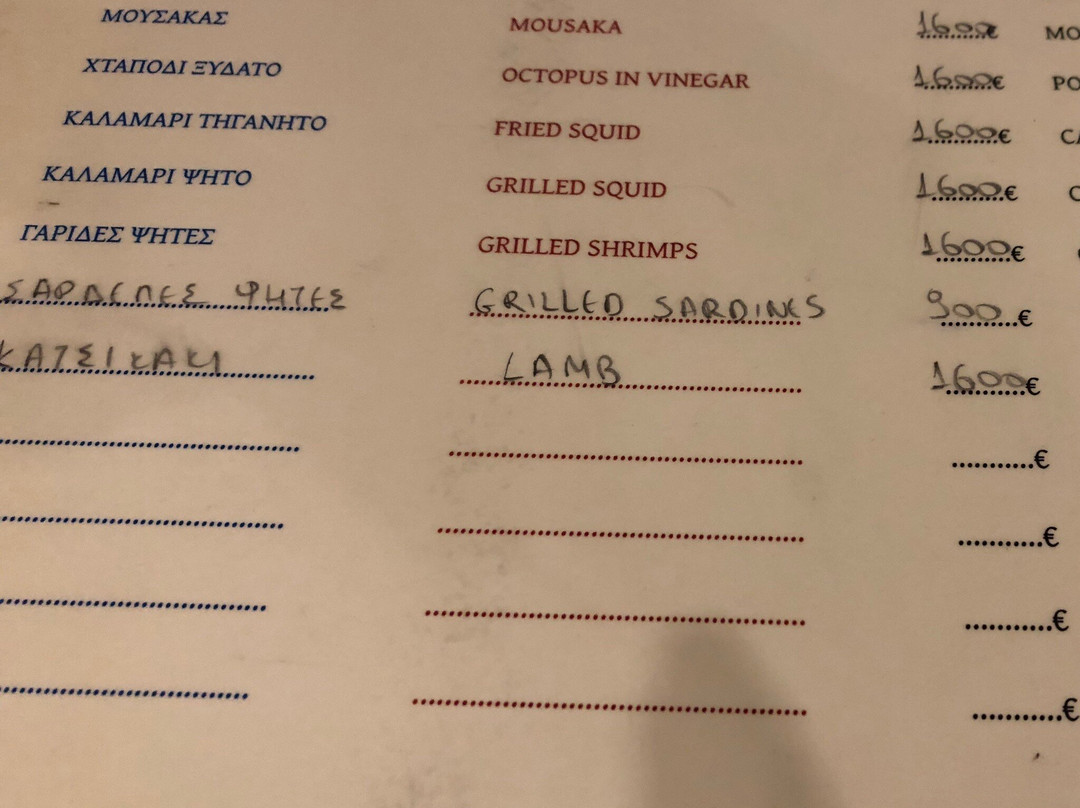 ΜΟΥΣΑΚΑΣ MOUSAKA 1600€ MO
ΧΤΑΠΟΔΙ ΞΥΔΑΤΟ OCTOPUS IN VINEGAR 1600€ PO
ΚΑΛΑΜΑΡΙ ΤΗΓΑΝΗΤΟ FRIED SQUID 1600€ CA
ΚΑΛΑΜΑΡΙ ΨΗΤΟ GRILLED SQUID 1600€
ΓΑΡΙΔΕΣ ΨΗΤΕΣ GRILLED SHRIMPS 1600€
ΣΑΡΔΕΛΕΣ ΨΗΤΕΣ GRILLED SARDINES 900€
ΚΑΤΣΙΚΑΚΙ LAMB 1600€
€
€
€
€